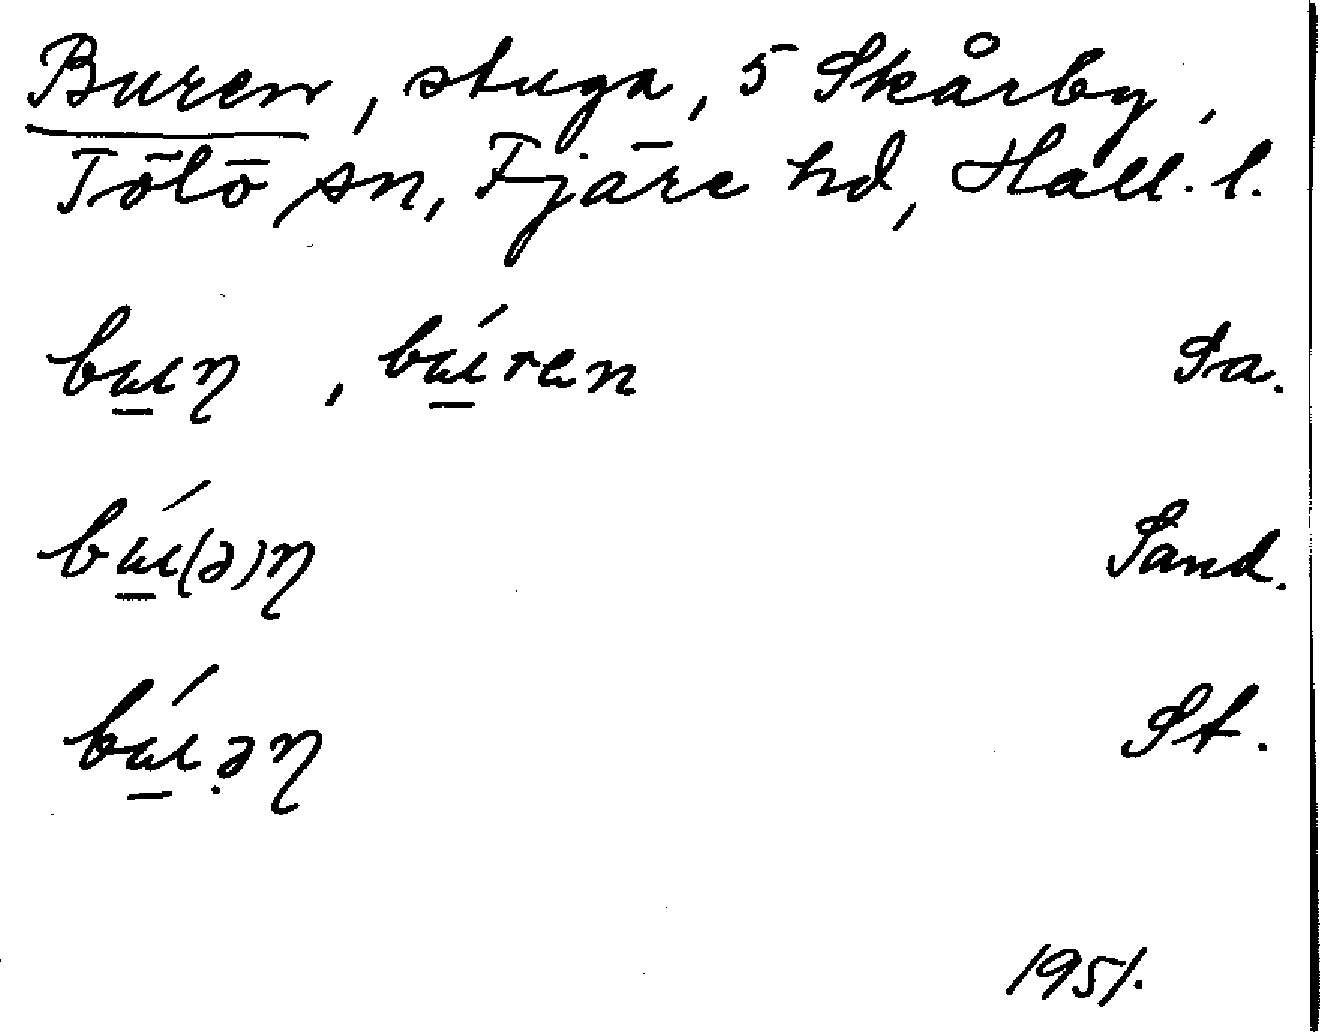 Buren, stuga, 5 Skårby,
Tölö sn, Fjäre hd, Hall. l.
bɯɳ, bɯ́ren Sa.
bɯ́(ə)ɳ Sand.
bɯ́.əɳ St.
1951.